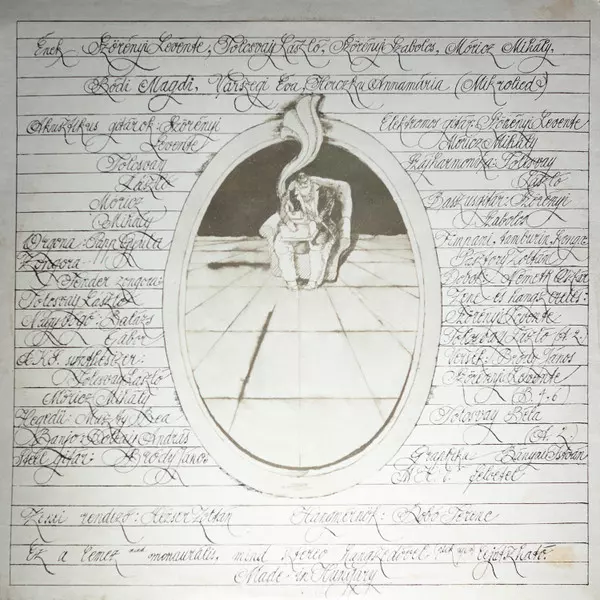 Ének: Szörényi Levente, Tolcsvay László, Szörényi Szabolcs, Móricz Mihály,
Bódi Magdi, Várszegi Éva, Herczku Annamária (Mikrolied)
Akusztikus gitárok: Szörényi
Levente
Tolcsvay
László
Móricz
Mihály
Orgona: Papp Gyula
Zongora
Fender zongora
Tolcsvay László
Nagybőgő: Balázs
Gábor
szintetizer:
Tolcsvay László
Móricz Mihály
Hegedű:
Banjo: András
Steel gitár: Bródy János
Elektromos gitár: Szörényi Levente
Móricz Mihály
Szájharmonika: Tolcsvay
László
Basszusgitár: Szörényi
Szabolcs
Timpani, tamburin, konga:
Zoltán
Dobok: Németh Oszkár
Zene és hangszerelés:
Szörényi Levente
Tolcsvay László
Versek: Bródy János
Szörényi Levente
(B. 4. 6)
Tolcsvay Béla
(A. 2)
Grafika: Bányai István
M.H.V. felvétel
Zenei rendező: Zoltán Hangmérnök: Ferenc
Ez a lemez mind monaurális, mind sztereo hangszedővel lejátszható.
Made in Hungary